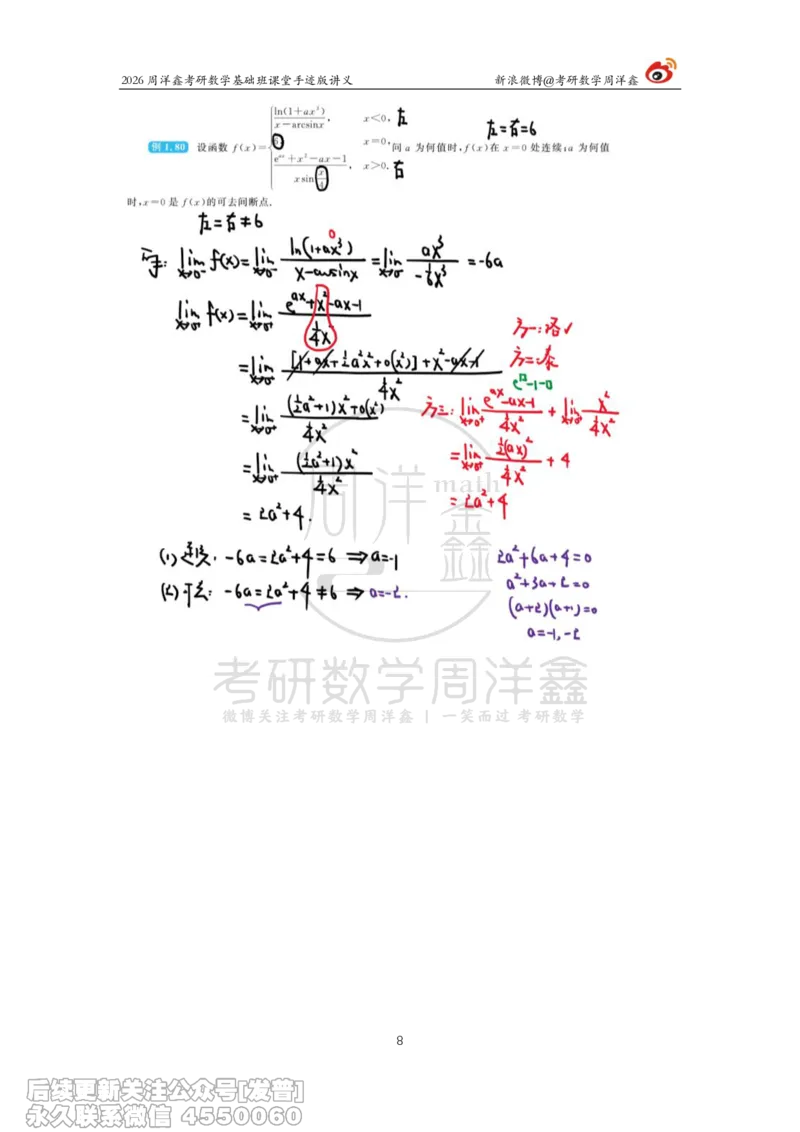 2026 周洋鑫考研数学基础班课堂手迹版讲义 新浪微博@考研数学周洋鑫
ln(1+ax³)/(x-arcsinx), x<0, 左
左=右=6
例 1.80 设函数 f(x)= 6, x=0, 问 a 为何值时, f(x)在 x=0 处连续; a 为何值
(e^(ax)+x²-ax-1)/(x sin(x/4)), x>0. 右
时, x=0 是 f(x)的可去间断点.
左=右≠6
lim_(x→0⁻) f(x)=lim_(x→0⁻) ln(1+ax³)/(x-arcsinx) =lim_(x→0⁻) ax³/(-1/6 x³) =-6a
0
lim_(x→0⁺) f(x)=lim_(x→0⁺) (e^(ax)+x²-ax-1)/(1/4 x²)
=lim_(x→0⁺) ([1+ax+1/2 a²x²+o(x²)]+x²-ax-1)/(1/4 x²)
=lim_(x→0⁺) ((1/2 a²+1)x²+o(x²))/(1/4 x²)
=lim_(x→0⁺) (1/2 a²+1)x²/(1/4 x²)
=2a²+4.
方一:洛√
方二:泰
e^□-1-□
方三: lim_(x→0⁺) (e^(ax)-ax-1)/(1/4 x²) + lim_(x→0⁺) x²/(1/4 x²)
=lim_(x→0⁺) 1/2 (ax)²/(1/4 x²) +4
=2a²+4
(1) 连续: -6a=2a²+4=6 ⇒a=-1
(2) 可去: -6a=2a²+4≠6 ⇒a=-2.
2a²+6a+4=0
a²+3a+2=0
(a+2)(a+1)=0
a=-1,-2
周洋鑫 math
考研数学周洋鑫
微博关注考研数学周洋鑫 | 一笑而过 考研数学
8
后续更新关注公众号[发普]
永久联系微信 4550060